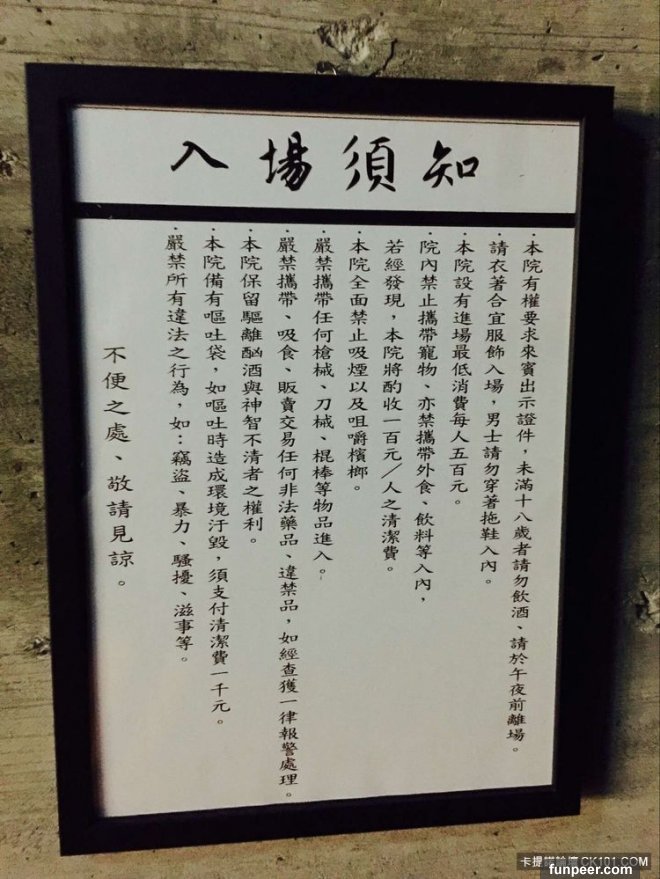 入場須知
·本院有權要求來賓出示證件，未滿十八歲者請勿飲酒、請於午夜前離場。
·請衣著合宜服飾入場，男士請勿穿著拖鞋入內。
·本院設有進場最低消費每人五百元。
·院內禁止攜帶寵物、亦禁攜帶外食、飲料等入內，
若經發現，本院將酌收一百元／人之清潔費。
·本院全面禁止吸煙以及咀嚼檳榔。
·嚴禁攜帶任何槍械、刀械、棍棒等物品進入。
·嚴禁攜帶、吸食、販賣交易任何非法藥品、違禁品，如經查獲一律報警處理。
·本院保留驅離酗酒與神智不清者之權利。
·本院備有嘔吐袋，如嘔吐時造成環境汙毀，須支付清潔費一千元。
·嚴禁所有違法之行為，如：竊盜、暴力、騷擾、滋事等。
不便之處、敬請見諒。
卡提諾論壇 CK101.COM
funpeer.com